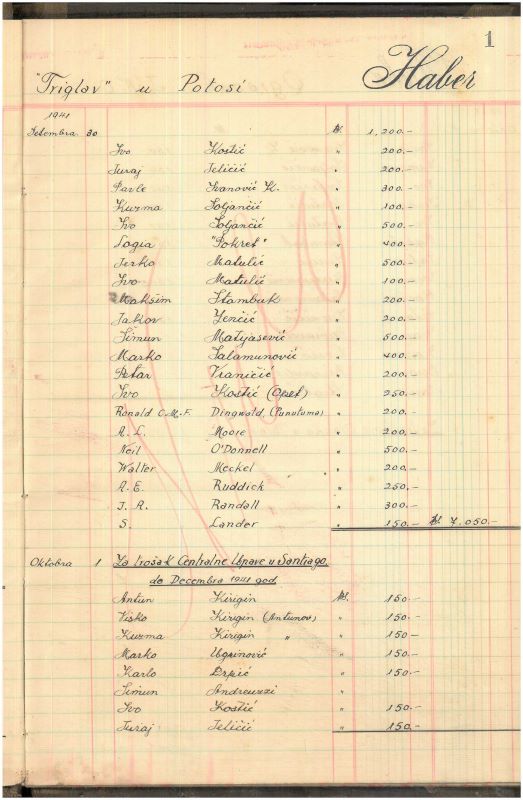 1
Haber
"Triglav" u Potosí
1941
Setembra 30 1,200.-
Ivo Kostić " 200.-
Juraj Jeličić " 200.-
Pavle Ivanović K. " 300.-
Kuzma Soljančić " 100.-
Ivo Soljančić " 500.-
Logia "Pokret" " 400.-
Jerko Matulić " 500.-
Ivo Matulić " 100.-
Maksim Stambuk " 200.-
Jakov Yenčić " 200.-
Šimun Matyasević " 500.-
Marko Salamunović " 400.-
Petar Vraničić " 200.-
Ivo Kostić (Opet) " 250.-
Ronald C.M.F. Dingwald (Punutuma) " 200.-
A. L. Moore " 200.-
Neil O'Donnell " 500.-
Walter Meckel " 200.-
A. E. Ruddick " 250.-
J. A. Randall " 300.-
S. Lander " 150.- 7.050.-
Oktobra 1 Za trošak Centralne Uprave u Santiago,
do Decembra 1941 god.
Antun Kirigin 150.-
Visko Kirigin (Antunov) " 150.-
Kuzma Kirigin " " 150-
Marko Ugrinović " 150.-
Karlo Drpić " 150.-
Šimun "
Ivo Kostić " 150.-
Juraj Jeličić " 150.-